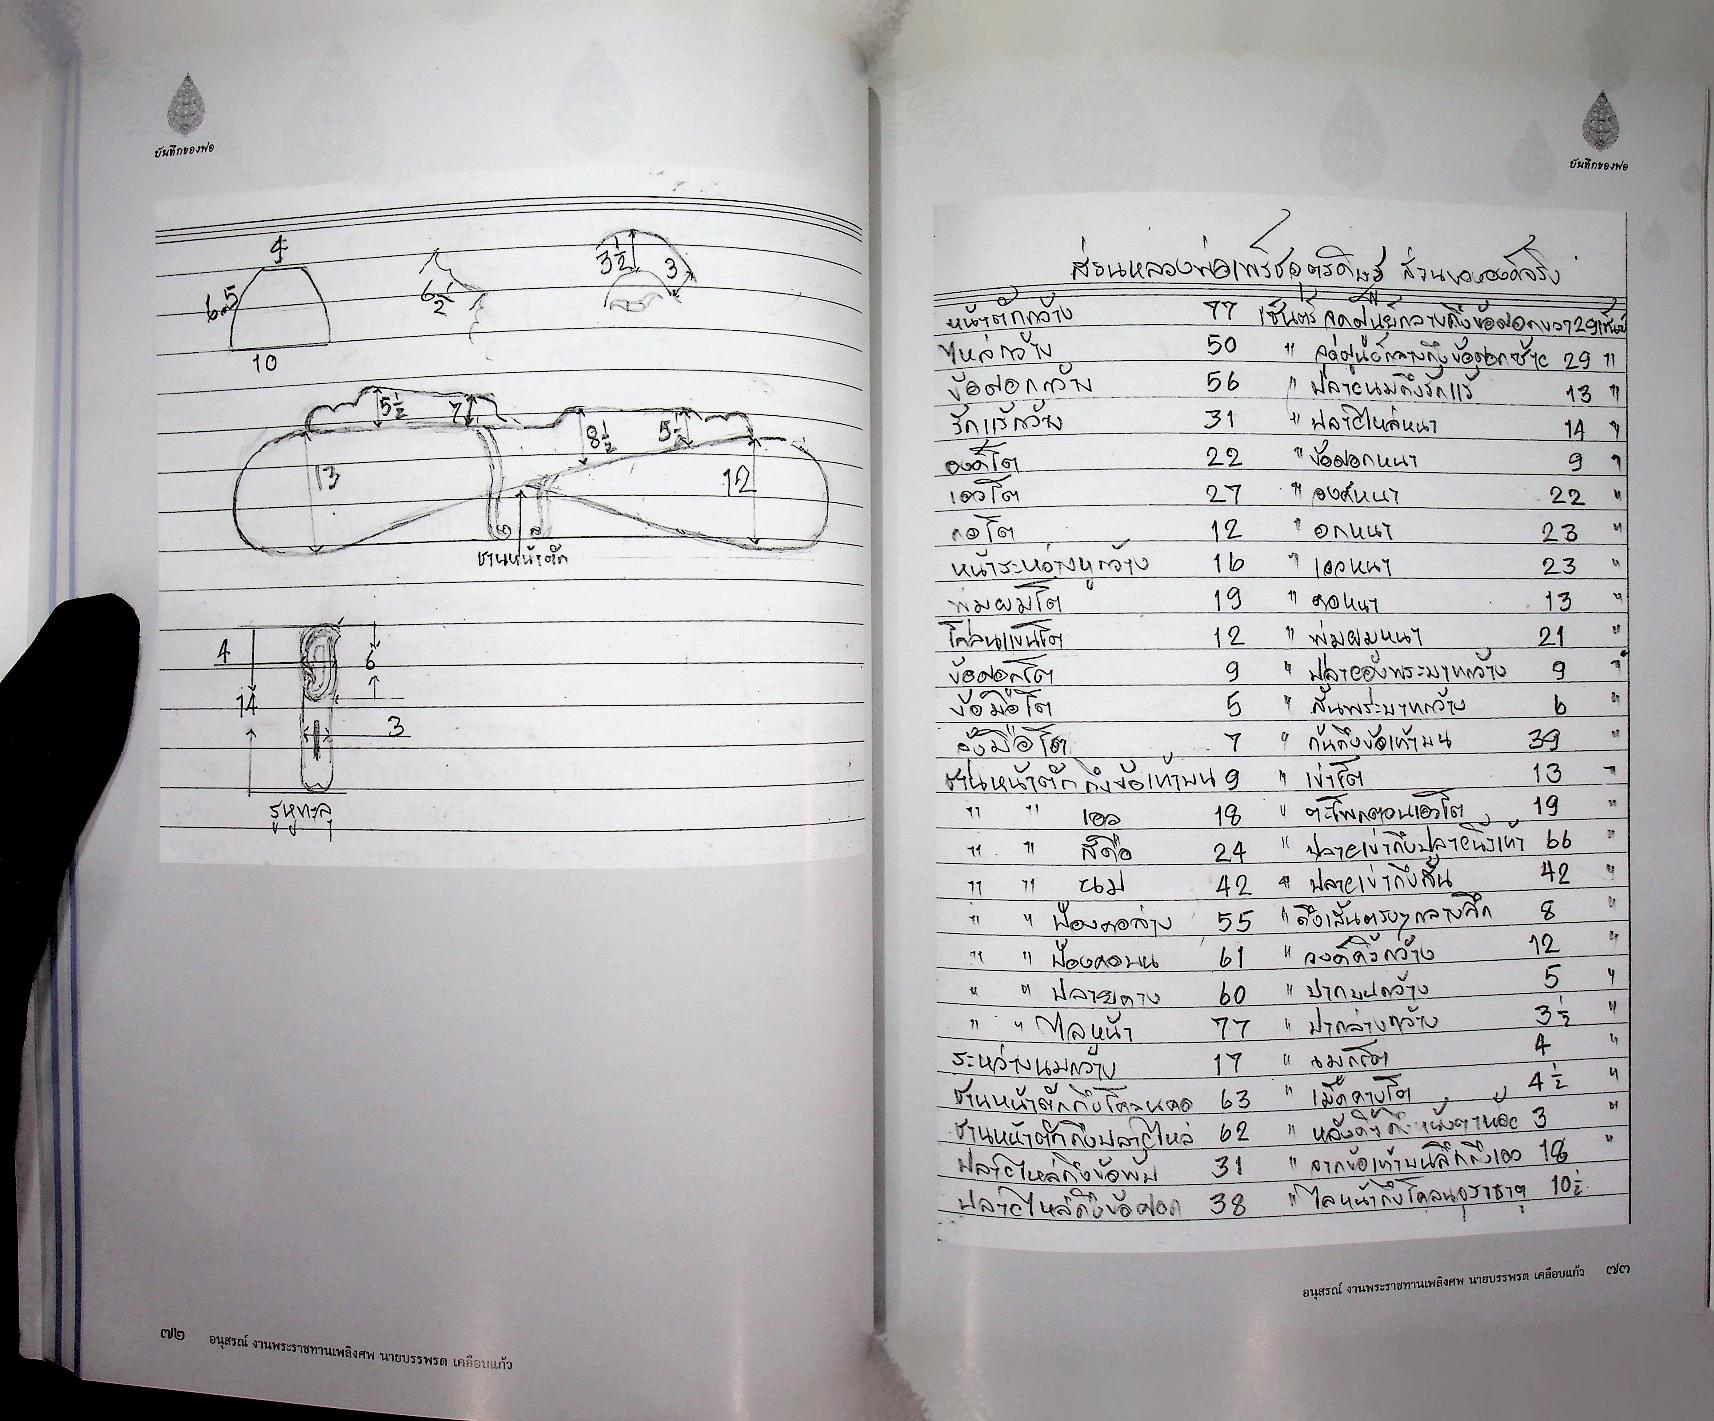 บันทึกของพ่อ
4
3 1/2
3
6.5
6 1/2
10
5 1/2
7
8 1/2
5 1/2
13
12
ชานหน้าตัก
4
6
14
3
รูหูทะลุ
๗๒ อนุสรณ์ งานพระราชทานเพลิงศพ นายบรรพรต เคลือบแก้ว
บันทึกของพ่อ
ส่วนหลวงพ่อเพชรอุตรดิษฐ์ ส่วนขององค์จริง
หน้าตักกว้าง 77 เซ็นต์ จุดศูนย์กลางถึงข้อศอกขวา 29 เซ็นต์
ไหล่กว้าง 50 " จุดศูนย์กลางถึงข้อศอกซ้าย 29 "
ข้อศอกกว้าง 56 " ปลายนมถึงรักแร้ 13 "
รักแร้กว้าง 31 " ปลายไหล่หนา 14 "
องค์โต 22 " ข้อศอกหนา 9 "
เอวโต 27 " องค์หนา 22 "
คอโต 12 " อกหนา 23 "
หน้าระหว่างหูกว้าง 16 " เอวหนา 23 "
พุ่มผมโต 19 " คอหนา 13 "
โคนแขนโต 12 " พุ่มผมหนา 21 "
ข้อศอกโต 9 " ปลายพระบาทกว้าง 9 "
ข้อมือโต 5 " ส้นพระบาทกว้าง 6 "
มือโต 7 " ก้นถึงข้อเท้าบน 39 "
ชานหน้าตักถึงข้อเท้าบน 9 " เข่าโต 13 "
" " เอว 18 " ตะโพกตอนเอวโต 19 "
" " สดือ 24 " ปลายเข่าถึงปลายนิ้วเท้า 66 "
" " นม 42 " ปลายเข่าถึงส้น 42 "
" " ป้องคอล่าง 55 " ถึงเส้นตรงๆกลาง 8 "
" " ป้องคอบน 61 " กว้าง 12 "
" " ปลายคาง 60 " ปากบนกว้าง 5 "
" " ไลหน้า 77 " ปากล่างกว้าง 3 1/2 "
ระหว่างนมกว้าง 17 " จมูกโต 4 "
ชานหน้าตักถึงโคนคอ 63 " เม็ดคางโต 4 1/2 "
ชานหน้าตักถึงปลายไหล่ 62 " 3 "
ปลายไหล่ถึงข้อพับ 31 " จากข้อเท้าบนถึงเอว 18 "
ปลายไหล่ถึงข้อศอก 38 " ไลหน้าถึงโคน 10 1/2 "
อนุสรณ์ งานพระราชทานเพลิงศพ นายบรรพรต เคลือบแก้ว ๗๓